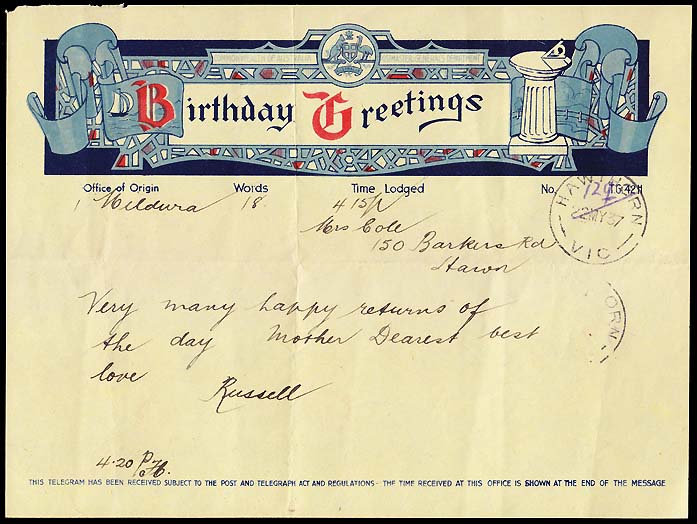 COMMONWEALTH OF AUSTRALIA POSTMASTER GENERAL'S DEPARTMENT
Birthday Greetings
Office of Origin Words Time Lodged No. T.G.42H
Mildura 18 4 15p 124
Mrs Cole
150 Barkers Rd
Hawn
HAWTHORN
MY 37
VIC
ORN
Very many happy returns of
the day Mother Dearest best
love
Russell
4.20 p
THIS TELEGRAM HAS BEEN RECEIVED SUBJECT TO THE POST AND TELEGRAPH ACT AND REGULATIONS - THE TIME RECEIVED AT THIS OFFICE IS SHOWN AT THE END OF THE MESSAGE